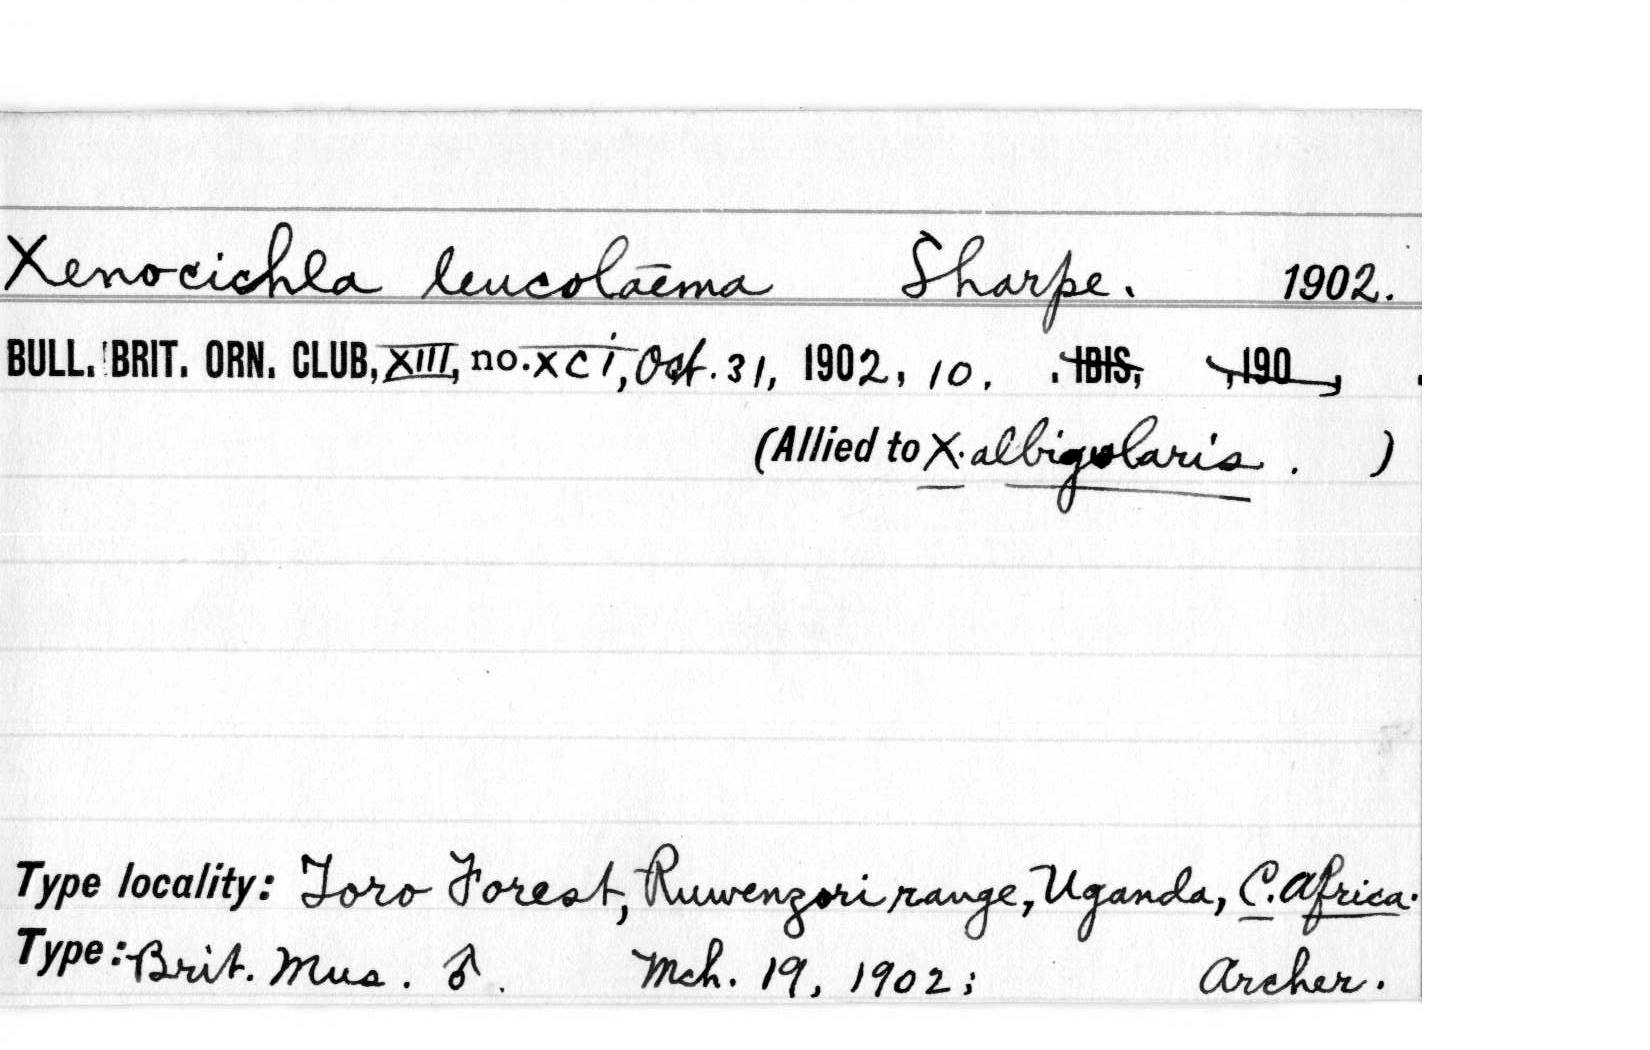 Xenocichla leucolaema Sharpe. 1902.
BULL. BRIT. ORN. CLUB, XIII, no. xci, Oct. 31, 1902, 10. . IBIS, , 190 , .
(Allied to X. albigularis . )
Type locality: Toro Forest, Ruwenzori range, Uganda, C. Africa.
Type: Brit. Mus. ♂. Mch. 19, 1902; Archer.